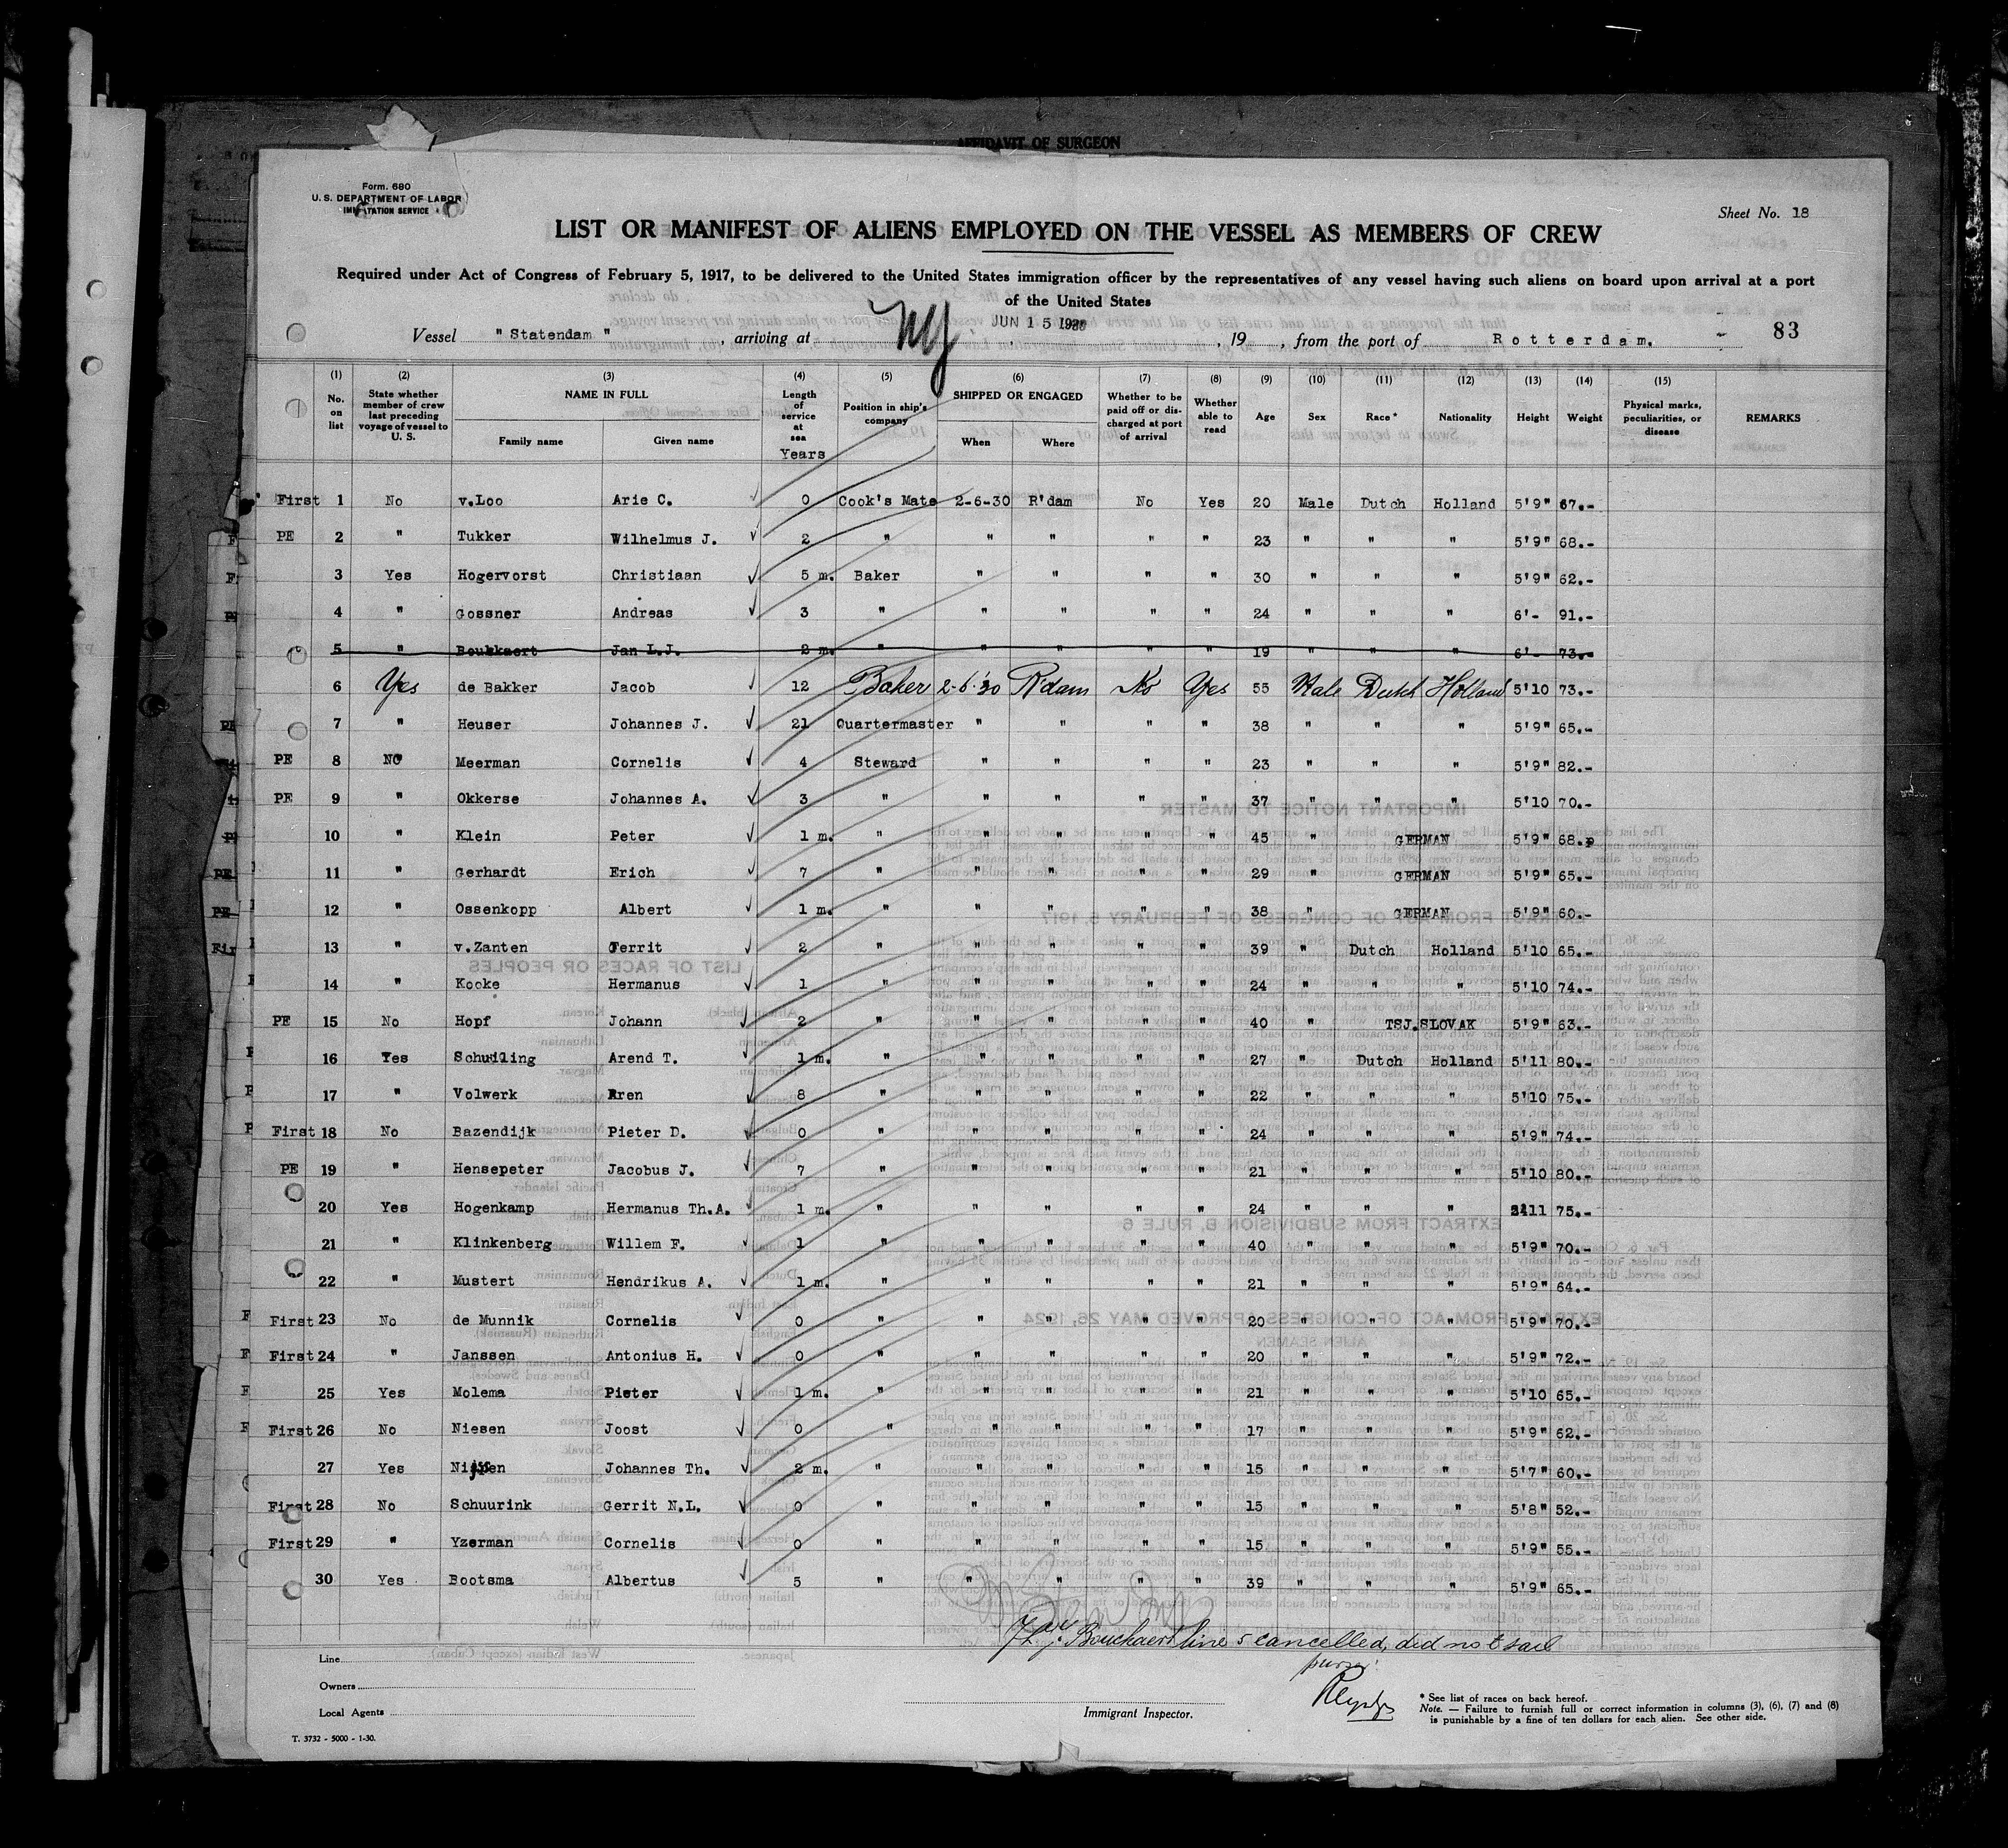 AFFIDAVIT OF SURGEON
Form. 680
U. S. DEPARTMENT OF LABOR
Sheet No. 18
LIST OR MANIFEST OF ALIENS EMPLOYED ON THE VESSEL AS MEMBERS OF CREW
Required under Act of Congress of February 5, 1917, to be delivered to the United States immigration officer by the representatives of any vessel having such aliens on board upon arrival at a port
of the United States
Vessel " Statendam ", arriving at NY, JUN 15 1930, 19 , from the port of Rotterdam. 83
(1) No. on list (2) State whether member of crew last preceding voyage of vessel to U. S. (3) NAME IN FULL Family name Given name (4) Length of service at sea Years (5) Position in ship's company (6) SHIPPED OR ENGAGED When Where (7) Whether to be paid off or discharged at port of arrival (8) Whether able to read (9) Age (10) Sex (11) Race * (12) Nationality (13) Height (14) Weight (15) Physical marks, peculiarities, or disease REMARKS
First 1 No v.Loo Arie C. 0 Cook's Mate 2-6-30 R'dam No Yes 20 Male Dutch Holland 5'9" 67.-
PE 2 " Tukker Wilhelmus J. 2 " " " " " 23 " " " 5'9" 68.-
3 Yes Hogervorst Christiaan 5 m. Baker " " " " 30 " " " 5'9" 62.-
4 " Gossner Andreas 3 " " " " " 24 " " " 6'- 91.-
5 " Jan L.J. 2 m. " " " " " 19 " " " 6'- 73.-
6 Yes de Bakker Jacob 12 Baker 2-6-'30 R'dam No Yes 55 Male Dutch Holland 5'10 73.-
7 " Heuser Johannes J. 21 Quartermaster " " " " 38 " " " 5'9" 65.-
PE 8 No Meerman Cornelis 4 Steward " " " " 23 " " " 5'9" 82.-
PE 9 " Okkerse Johannes A. 3 " " " " " 37 " " " 5'10 70.-
10 " Klein Peter 1 m. " " " " " 45 " GERMAN 5'9" 68.
11 " Gerhardt Erich 7 " " " " " 29 " GERMAN 5'9" 65.-
12 " Ossenkopp Albert 1 m. " " " " " 38 " GERMAN 5'9" 60.-
13 " v.Zanten Gerrit 2 " " " " " 39 " Dutch Holland 5'10 65.-
14 " Kooke Hermanus 1 " " " " " 24 " " " 5'10 74.-
PE 15 No Hopf Johann 2 " " " " " 40 " TSJ.SLOVAK 5'9" 63.-
16 Yes Schuiling Arend T. 1 m. " " " " " 27 " Dutch Holland 5'11 80.-
17 " Volwerk Aren 8 " " " " " 22 " " " 5'10 75.-
First 18 No Bazendijk Pieter D. 0 " " " " " 24 " " " 5'9" 74.-
PE 19 " Hensepeter Jacobus J. 7 " " " " " 21 " " " 5'10 80.-
20 Yes Hogenkamp Hermanus Th.A. 1 m. " " " " " 24 " " " 5'11 75.-
21 " Klinkenberg Willem F. 1 " " " " " 40 " " " 5'9" 70.-
22 " Mustert Hendrikus A. 1 m. " " " " " 21 " " " 5'9" 64.-
First 23 No de Munnik Cornelis 0 " " " " " 20 " " " 5'9" 70.-
First 24 " Janssen Antonius H. 0 " " " " " 20 " " " 5'9" 72.-
25 Yes Molema Pieter 1 m. " " " " " 21 " " " 5'10 65.-
First 26 No Niesen Joost 0 " " " " " 17 " " " 5'9" 62.-
27 Yes Johannes Th. 2 m. " " " " " 15 " " " 5'7" 60.-
First 28 No Schuurink Gerrit N.L. 0 " " " " " 15 " " " 5'8" 52.-
First 29 " Yzerman Cornelis 0 " " " " " 15 " " " 5'9" 55.-
30 Yes Bootsma Albertus 5 " " " " " 39 " " " 5'9" 65.-
Bouckaert line 5 cancelled, did not sail
purser
Line
Owners
Local Agents
Immigrant Inspector.
* See list of races on back hereof.
Note. — Failure to furnish full or correct information in columns (3), (6), (7) and (8)
is punishable by a fine of ten dollars for each alien. See other side.
T. 3732 - 5000 - 1-30.